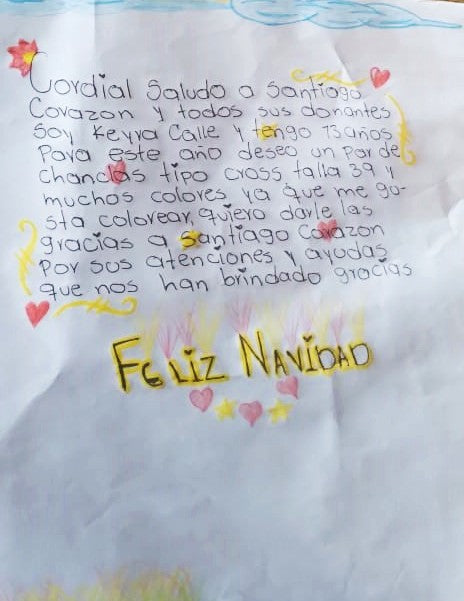 Cordial Saludo a Santiago
Corazon y todos sus donantes
Soy Keyra Calle y tengo 13años
Para este año deseo un par de
chanclas tipo cross talla 39 y
muchos colores ya que me gu-
sta colorear, quiero darle las
gracias a santiago Corazon
por sus atenciones y ayudas
que nos han brindado gracias
FELIZ NAVIDAD